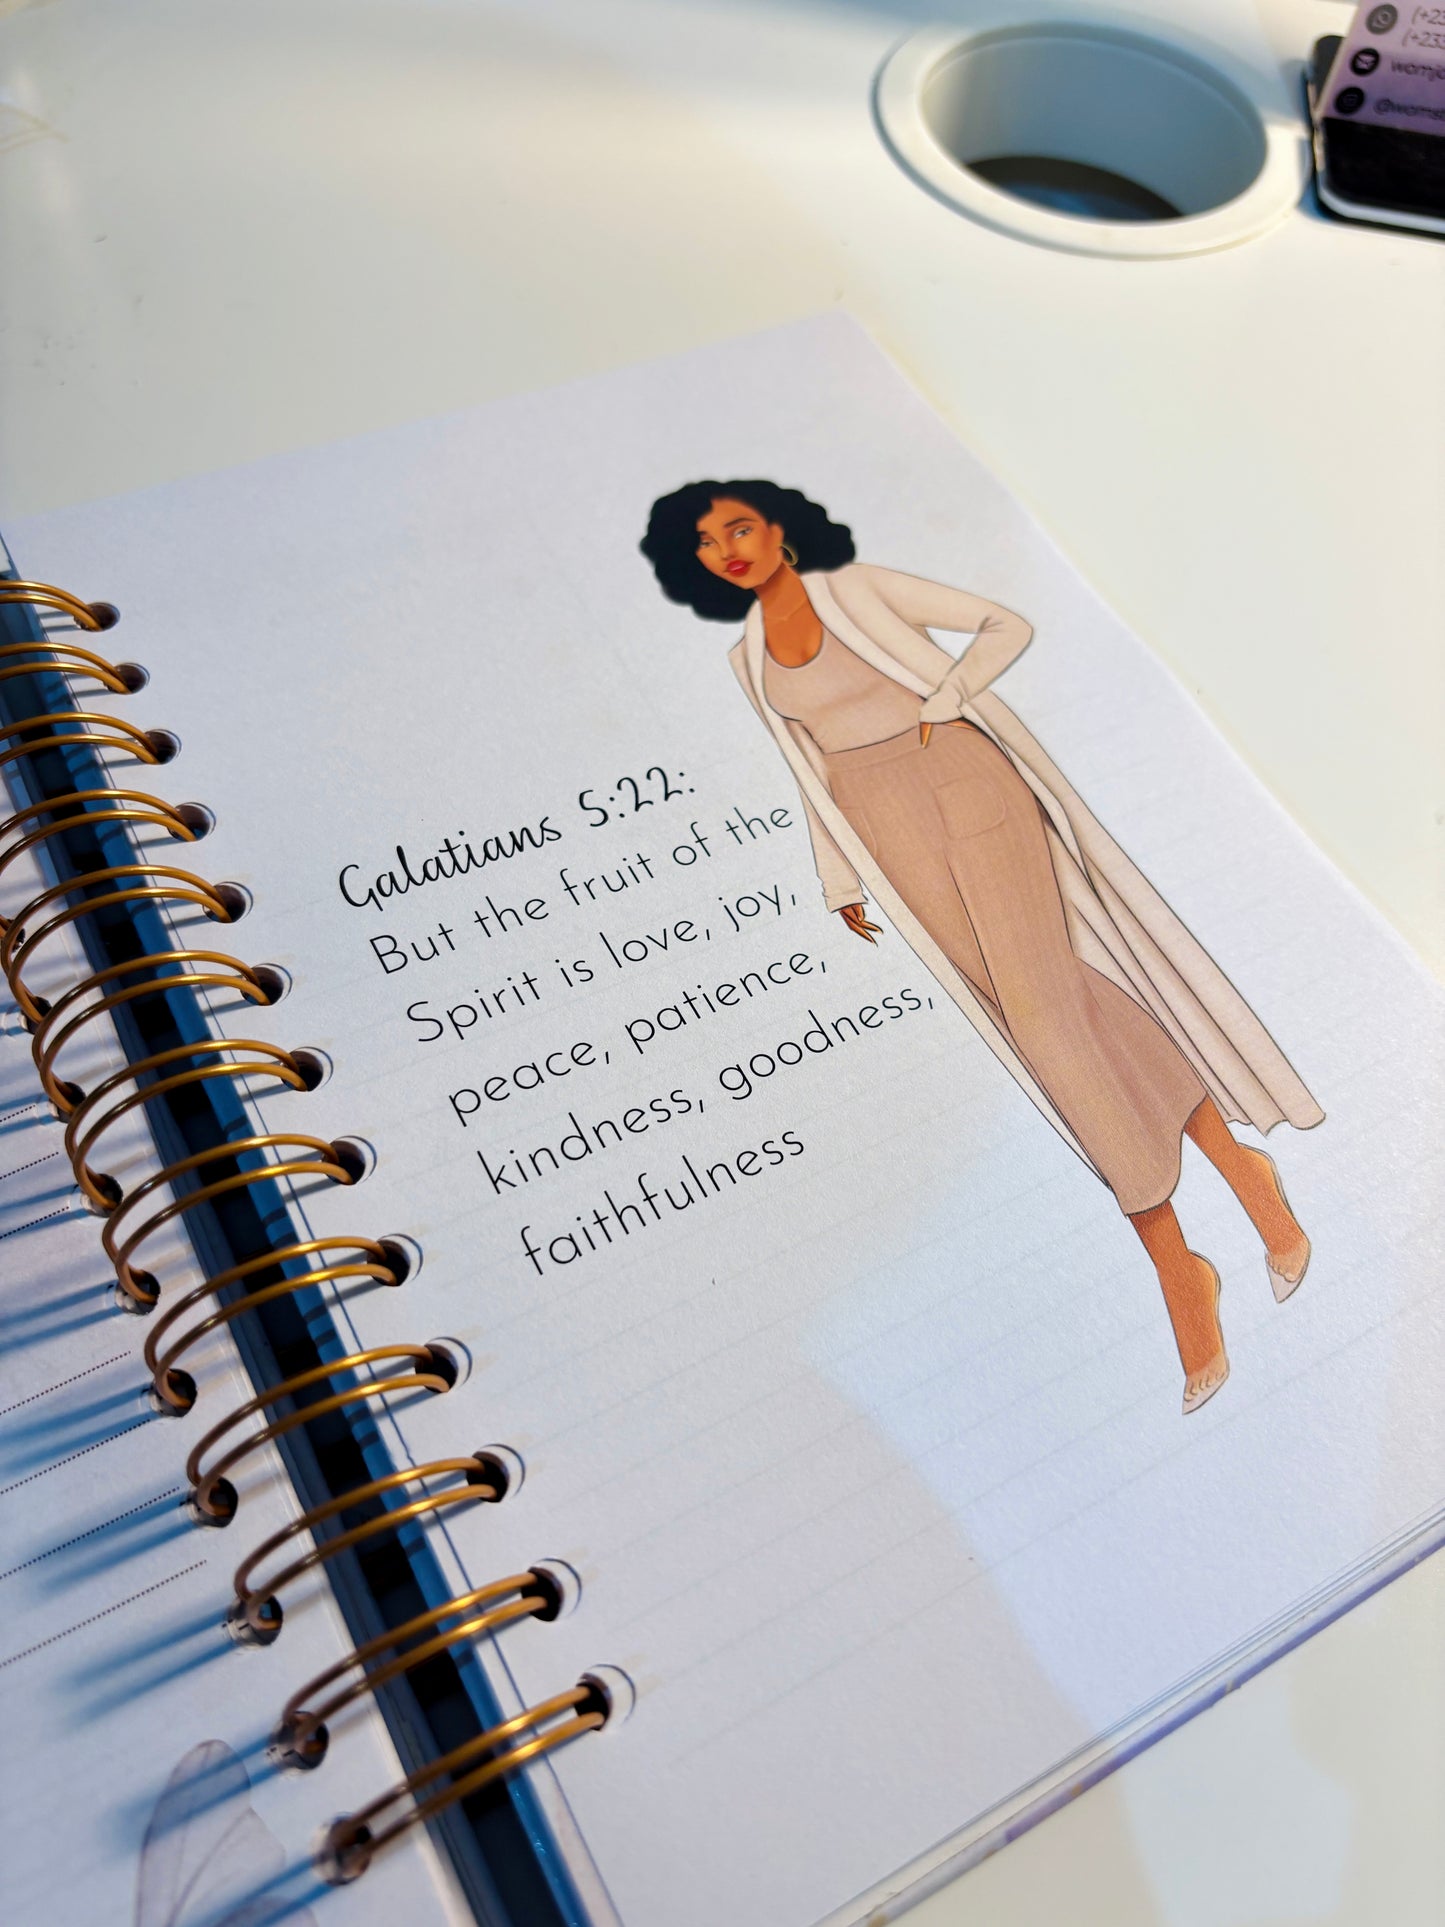 Galatians 5:22:
But the fruit of the
Spirit is love, joy,
peace, patience,
kindness, goodness,
faithfulness